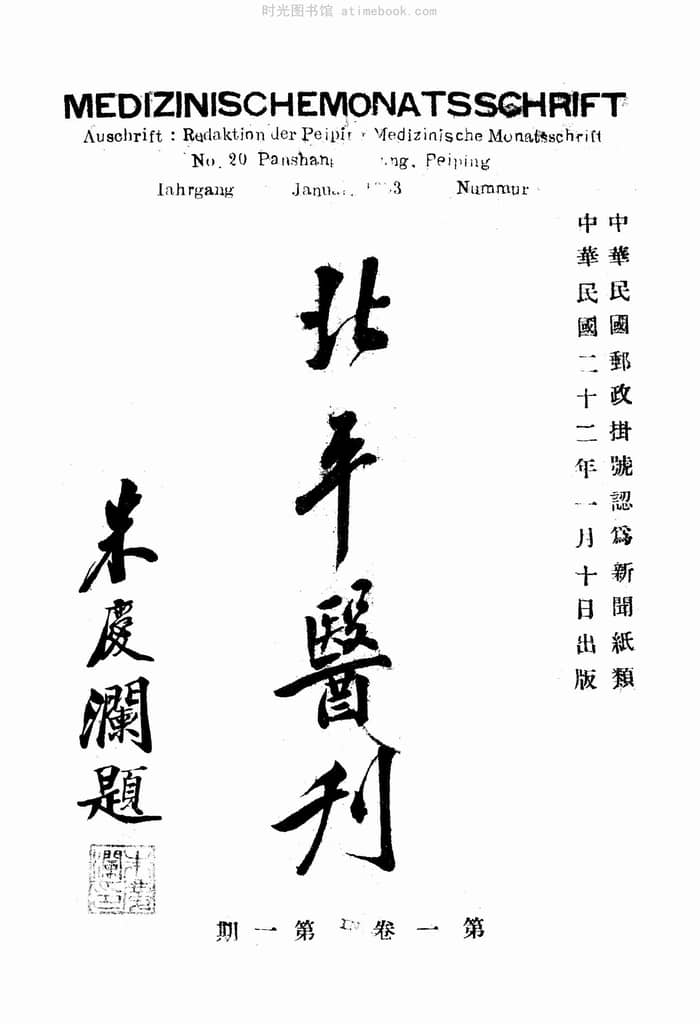 时光图书馆 atimebook.com
MEDIZINISCHEMONATSSCHRIFT
Auschrift : Redaktion der Medizinische Monatsschrift
No. 20 Peiping
Iahrgang Nummur
中華民國郵政掛號認爲新聞紙類
中華民國二十二年一月十日出版
北平醫刊
朱慶瀾題
第一卷 第一期